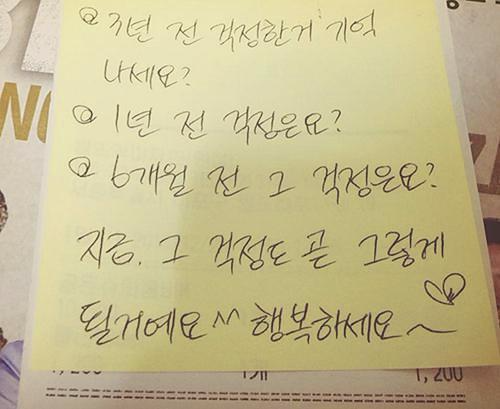 3년 전 걱정한거 기억
나세요?
1년 전 걱정은요?
6개월 전 그 걱정은요?
지금. 그 걱정도 곧 그렇게
될거예요^^ 행복하세요~
1,200